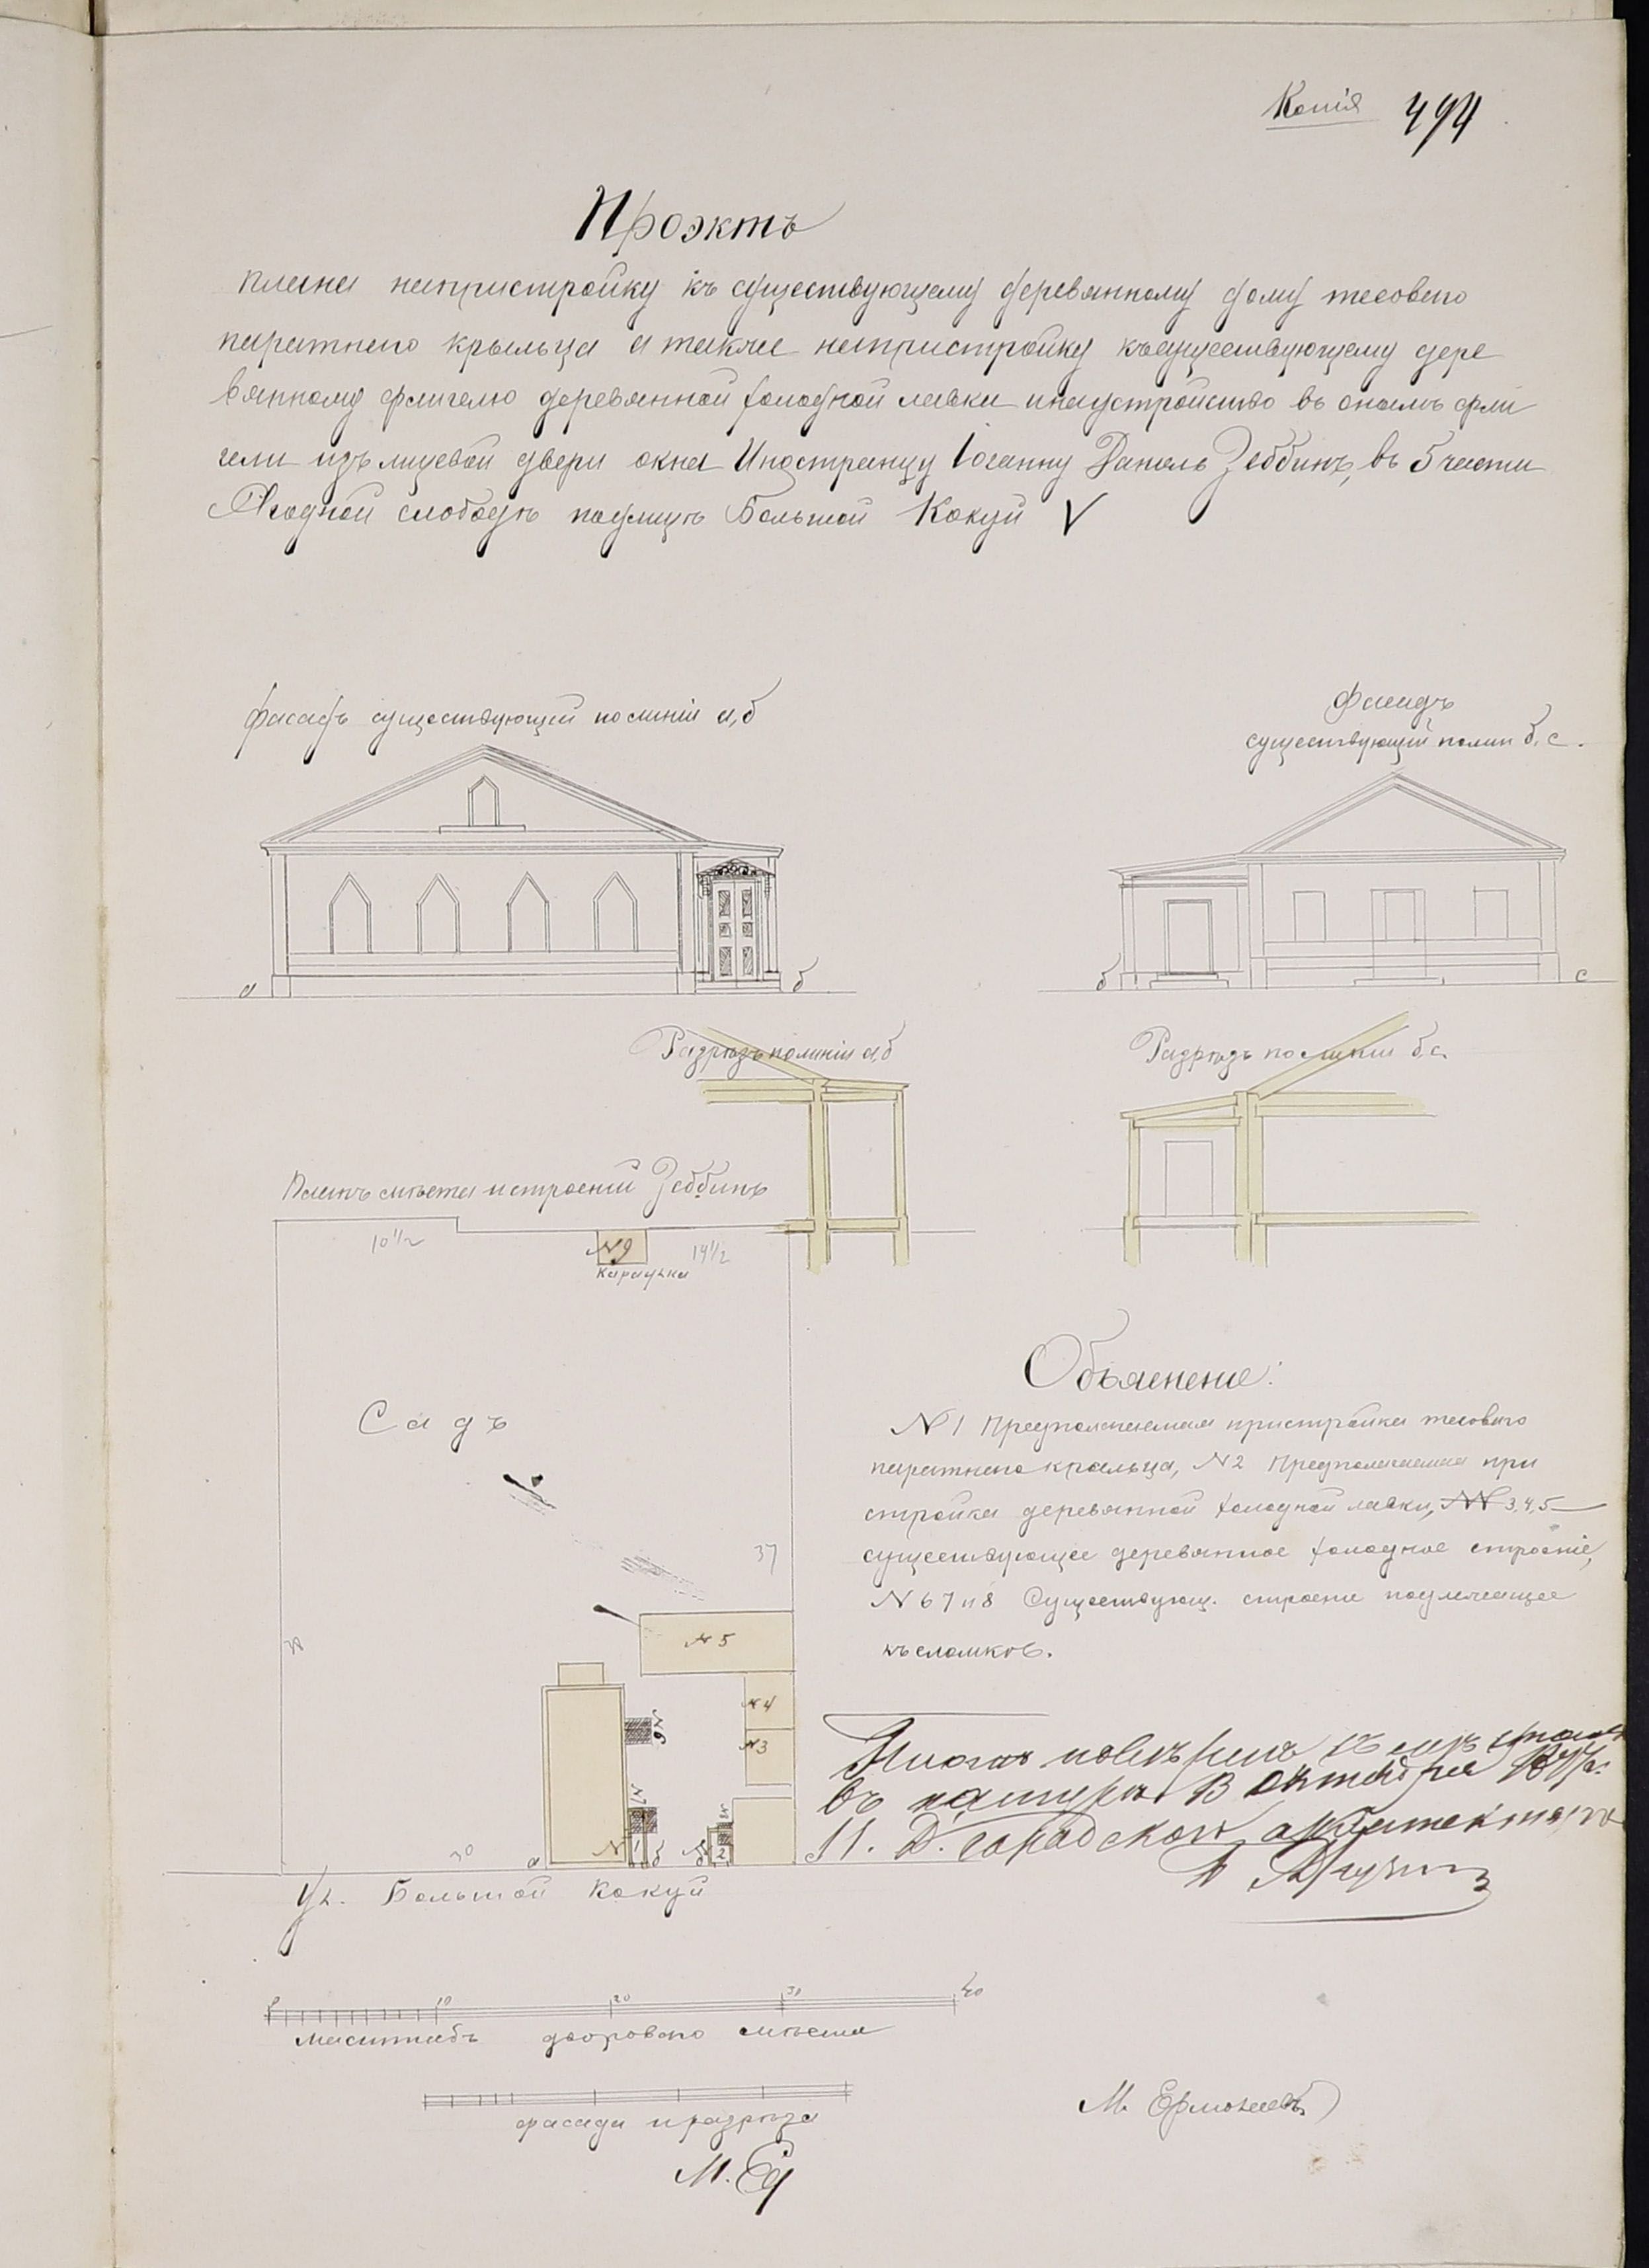 Копія 494
Проэктъ
плана напристройку къ существующему деревянному дому тесоваго
параднаго крыльца а также напристройку къ существующему дере
вянному флигелю деревянной холодной лавки инаустройство въ ономъ фли
гели изъ лицевой двери окна Иностранцу Іоганну Даніель Зеббинъ, въ 5 части
Ягодной слободѣ поулицѣ Большой Кокуй V
Фасадъ существующій полиніи а,б
Фасадъ
существующій полин б.с.
а б
б с
Разрѣзъ полиніи а,б
Разрѣзъ по линіи б,с.
Планъ мѣста и строеній Зеббинъ
10 1/2 N 9 14 1/2
Караулка
Садъ
37
N 5
N 4
N 3
30 а N 1 б N 2
Ул. Большой Кокуй
Объясненіе:
N 1 Предполагаемая пристройка тесоваго
параднаго крыльца, N 2 Предполагаемая при
стройка деревянной холодной лавки, NN 3,4,5
существующее деревянное холодное строеніе,
N 6 7 и 8 Существующ. строеніе подлежащее
къ сломков.
въ натурѣ 13 октября
городской архитекторъ
0 10 20 30 40
масштабъ двороваго мѣста
фасада и разрѣза
М. Ермолаевъ